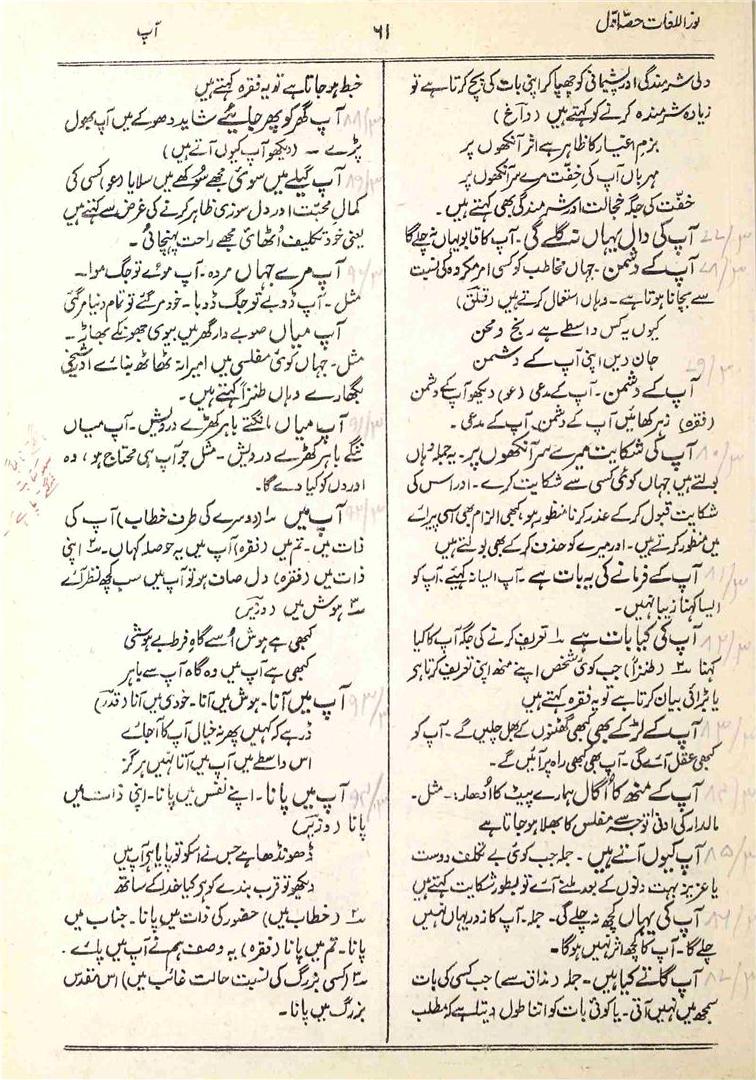 نور اللغات حصّہ اوّل
۶۱
آپ
دلی شرمندگی اور پشیمانی کو چھپا کر اپنی بات کی پچ کرتا ہے تو
زیادہ شرمندہ کرنے کو کہتے ہیں (داغ)
بزم اغیار کا ظاہر ہے اثر آنکھوں پر
مہرباں آپ کی خفّت مرے سر آنکھوں پر
خفّت کی جگہ خجالت اور شرمندگی بھی کہتے ہیں۔
آپ کی دال یہاں نہ گلے گی۔ آپ کا قابو یہاں نہ چلے گا
آپ کے دشمن۔ جہاں مخاطب کو کسی امر مکروہ کی نسبت
سے بچانا ہوتا ہے۔ وہاں استعمال کرتے ہیں (قلق)
کیوں یہ کس واسطے ہے رنج و محن
جان دیں اپنی آپ کے دشمن
آپ کے دشمن۔ آپ کے مدعی (عو) دیکھو آپ کے دشمن
(فقرہ) زہر کھائیں آپ کے دشمن آپ کے مدعی۔
آپ کی شکایت میرے سر آنکھوں پر۔ یہ جملہ وہاں
بولتے ہیں جہاں کوئی کسی سے شکایت کرے۔ اور اس کی
شکایت قبول کر کے عذر کرنا منظور ہو، کبھی الزام بھی اسی پیرائے
میں منظور کرتے ہیں۔ اور میرے کو حذف کر کے بھی بولتے ہیں
آپ کے فرمانے کی یہ بات ہے۔ آپ ایسا نہ کہیے۔ آپ کو
ایسا کہنا زیبا نہیں۔
آپ کی کیا بات ہے ۱ تعریف کرنے کی جگہ آپ کا کیا
کہنا ۲ (طنزاً) جب کوئی شخص اپنے منھ اپنی تعریف کرتا ہے
یا بڑائی بیان کرتا ہے تو یہ فقرہ کہتے ہیں
آپ کے لڑکے بھی کبھی گھٹنوں کے بھل چلیں گے۔ آپ کو
کبھی عقل آئے گی۔ آپ بھی کبھی راہ پر آئیں گے۔
آپ کے منھ کا اُگال ہمارے پیٹ کا اُدھار۔ مثل۔
مالدار کی ادنیٰ توجہ سے مفلس کا بھلا ہو جاتا ہے
آپ کیوں آنے ہیں۔ جملہ جب کوئی بے تکلف دوست
یا عزیز بہت دنوں کے بعد ملنے آئے تو بطور شکایت کہتے ہیں
آپ کی یہاں کچھ نہ چلے گی۔ جملہ۔ آپ کا زور یہاں نہیں
چلے گا۔ آپ کا کچھ اثر نہیں ہوگا۔
آپ گاتے کیا ہیں۔ جملہ (مذاق سے) جب کسی کی بات
سمجھ میں نہیں آتی۔ یا کوئی بات کو اتنا طول دیتا ہے کہ مطلب
خبط ہو جاتا ہے تو یہ فقرہ کہتے ہیں
آپ گھر کو پھر جایئے شاید دھوکے میں آپ بھول
پڑے۔ (دیکھو آپ کیوں آنے ہیں)
آپ گیلے میں سوئی مجھے سوکھے میں سلایا (عو) کسی کی
کمال محبت اور دل سوزی ظاہر کرنے کی غرض سے کہتے ہیں
یعنی خود تکلیف اُٹھائی مجھے راحت پہنچائی۔
آپ مرے جہاں مردہ۔ آپ موئے تو جگ موا۔
مثل۔ آپ ڈوبے تو جگ ڈوبا۔ خود مر گئے تو تمام دنیا مر گئی
آپ میاں صوبے دار گھر میں بیوی جھونکے بھاڑ۔
مثل۔ جہاں کوئی مفلسی میں امیرانہ ٹھاٹھ بنائے اور شیخی
بگھارے وہاں طنزاً کہتے ہیں۔
آپ میاں مانگتے باہر کھڑے درویش۔ آپ میاں
ننگے باہر کھڑے درویش۔ مثل جو آپ ہی محتاج ہو، وہ
اوروں کو کیا دے گا۔
آپ میں ۱ (دوسرے کی طرف خطاب) آپ کی
ذات میں۔ تم میں (فقرہ) آپ میں یہ حوصلہ کہاں۔ ۲ اپنی
ذات میں (فقرہ) دل صاف ہو تو آپ میں سب کچھ نظر آئے
۳ ہوش میں (وزیر)
کبھی ہے ہوش اُسے گاہ فرطِ بے ہوشی
کبھی ہے آپ میں وہ گاہ آپ سے باہر
آپ میں آنا۔ ہوش میں آنا۔ خودی میں آنا (قدر)
ڈر ہے کہ کہیں پھر نہ خیال آپ کا آجائے
اس واسطے میں آپ میں آتا نہیں ہرگز
آپ میں پانا۔ اپنے نفس میں پانا۔ اپنی ذات میں
پانا (وزیر)
ڈھونڈھا ہے جس نے اسکو تو پایا ہے آپ میں
دیکھو تو قرب بندے کو ہے کیا خدا کے ساتھ
۲ (خطاب میں) حضور کی ذات میں پانا۔ جناب میں
پانا۔ تم میں پانا (فقرہ) یہ وصف ہم نے آپ میں پائے۔
۳ (کسی بزرگ کی نسبت حالت غائب میں) اس مقدس
بزرگ میں پانا۔